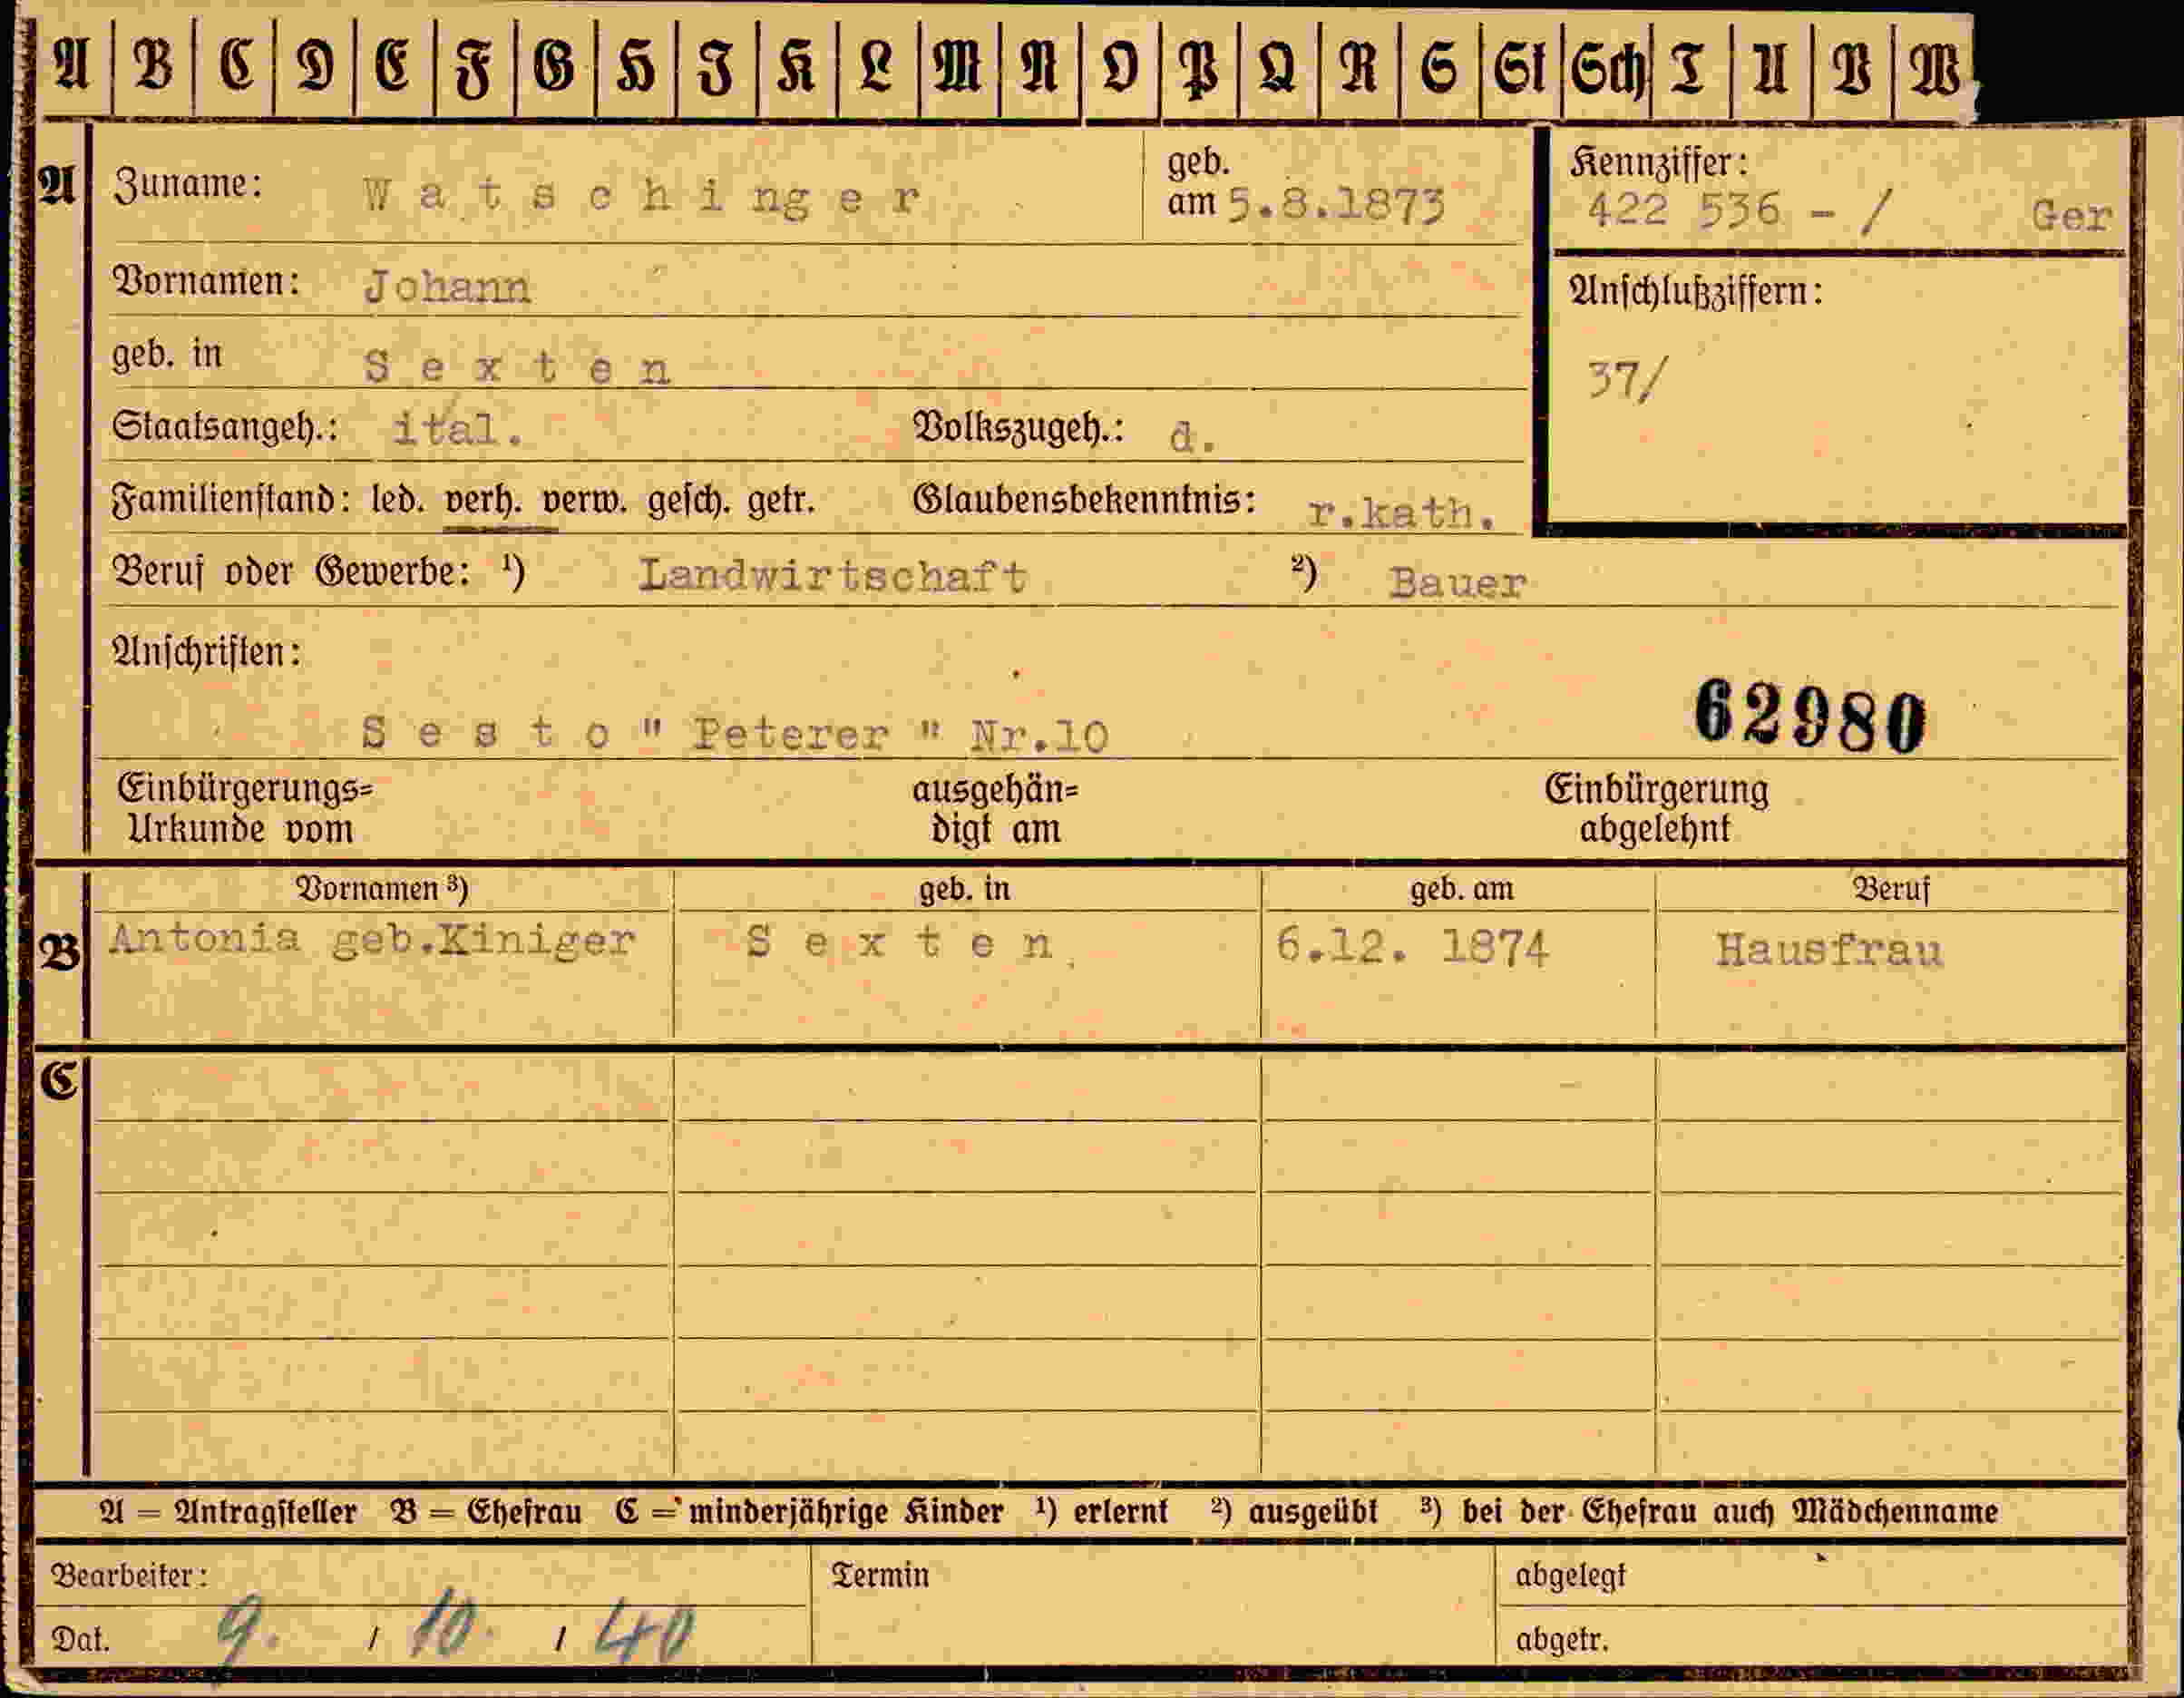 A B C D E F G H J K L M N O P Q R S St Sch T U V W
A Zuname: Watschinger geb. am 5.8.1873 Kennziffer: 422 536 - / Ger
Vornamen: Johann Anschlußziffern:
geb. in Sexten 37/
Staatsangeh.: ital. Volkszugeh.: d.
Familienstand: led. verh. verw. gesch. getr. Glaubensbekenntnis: r.kath.
Beruf oder Gewerbe: ¹) Landwirtschaft ²) Bauer
Anschriften:
Sesto " Peterer " Nr.10 62980
Einbürgerungs= ausgehän= Einbürgerung
Urkunde vom digt am abgelehnt
Vornamen ³) geb. in geb. am Beruf
B Antonia geb.Kiniger Sexten 6.12. 1874 Hausfrau
C
A = Antragsteller B = Ehefrau C = minderjährige Kinder ¹) erlernt ²) ausgeübt ³) bei der Ehefrau auch Mädchenname
Bearbeiter: Termin abgelegt
Dat. 9. / 10. / 40 abgetr.